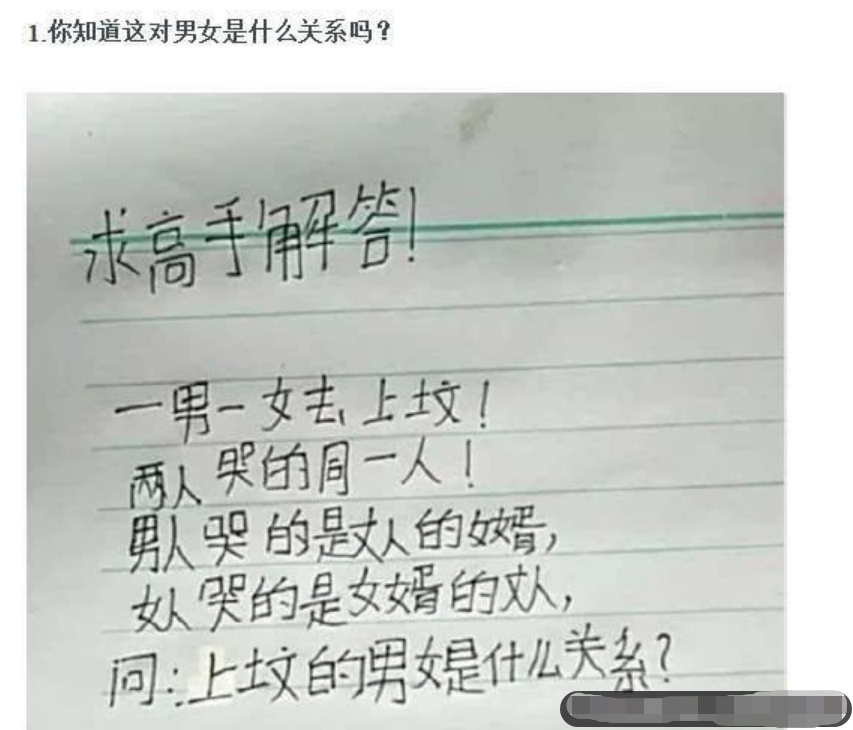 1.你知道这对男女是什么关系吗？
求高手解答!
一男一女去上坟!
两人哭的同一人!
男人哭的是丈人的女婿,
女人哭的是女婿的丈人,
问:上坟的男女是什么关系?